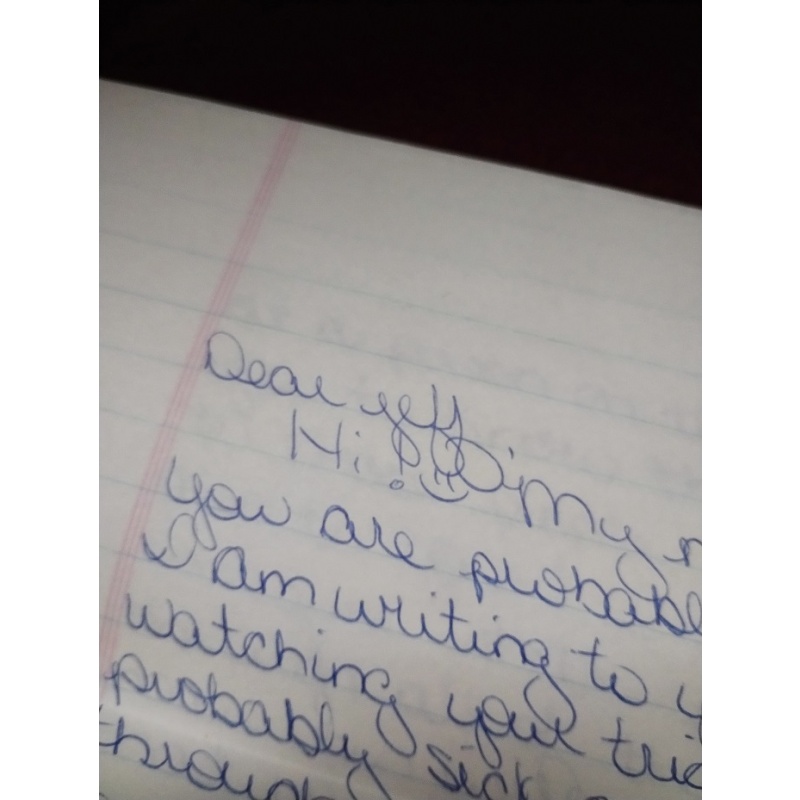 Dear Jeff
Hi! My
you are probabl
I am writing to y
watching your tri
probably sick
throug